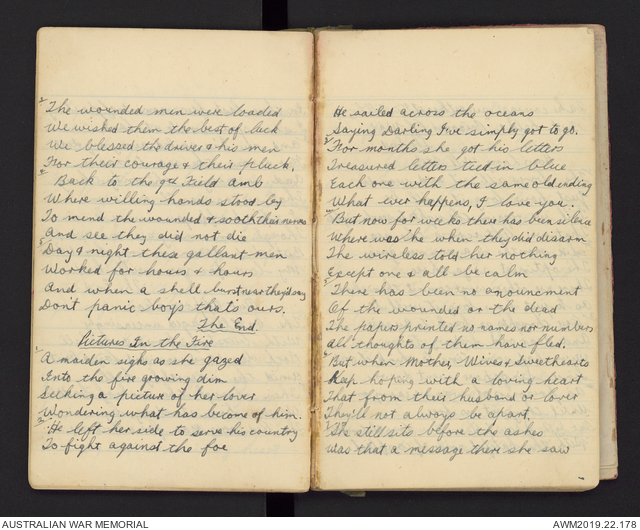 2 The wounded men were loaded
We wished them the best of luck
We blessed the driver & his men
For their courage & their pluck.
4 Back to the 9th Field Amb
Where willing hands stood by
To mend the wounded & sooth their nerves
And see they did not die
5 Day & night these gallant men
Worked for hours & hours
And when a shell burst near they'd say
Don't panic boy's that's ours.
The End.
Pictures In the Fire
1 A maiden sighs as she gazed
Into the fire growing dim
Seeking a picture of her lover
Wondering what has become of him.
2 He left her side to serve his country
To fight against the foe
He sailed across the oceans
Saying Darling I've simply got to go.
3 For months she got his letters
Treasured letters tied in blue
Each one with the same old ending
What ever happens, I love you.
But now for weeks there has been silence
Where was he when they did disarm
The wireless told her nothing
Except one & all be calm
5 There has been no anouncment
Of the wounded or the dead
The papers printed no names nor numbers
All thoughts of them have fled.
6 But when Mother Wives & Sweethearts
Keep hoping with a loving heart
That from their husband or lover
They'll not always be apart.
7 She still sits before the ashes
Was that a message there she saw
AUSTRALIAN WAR MEMORIAL
AWM2019.22.178